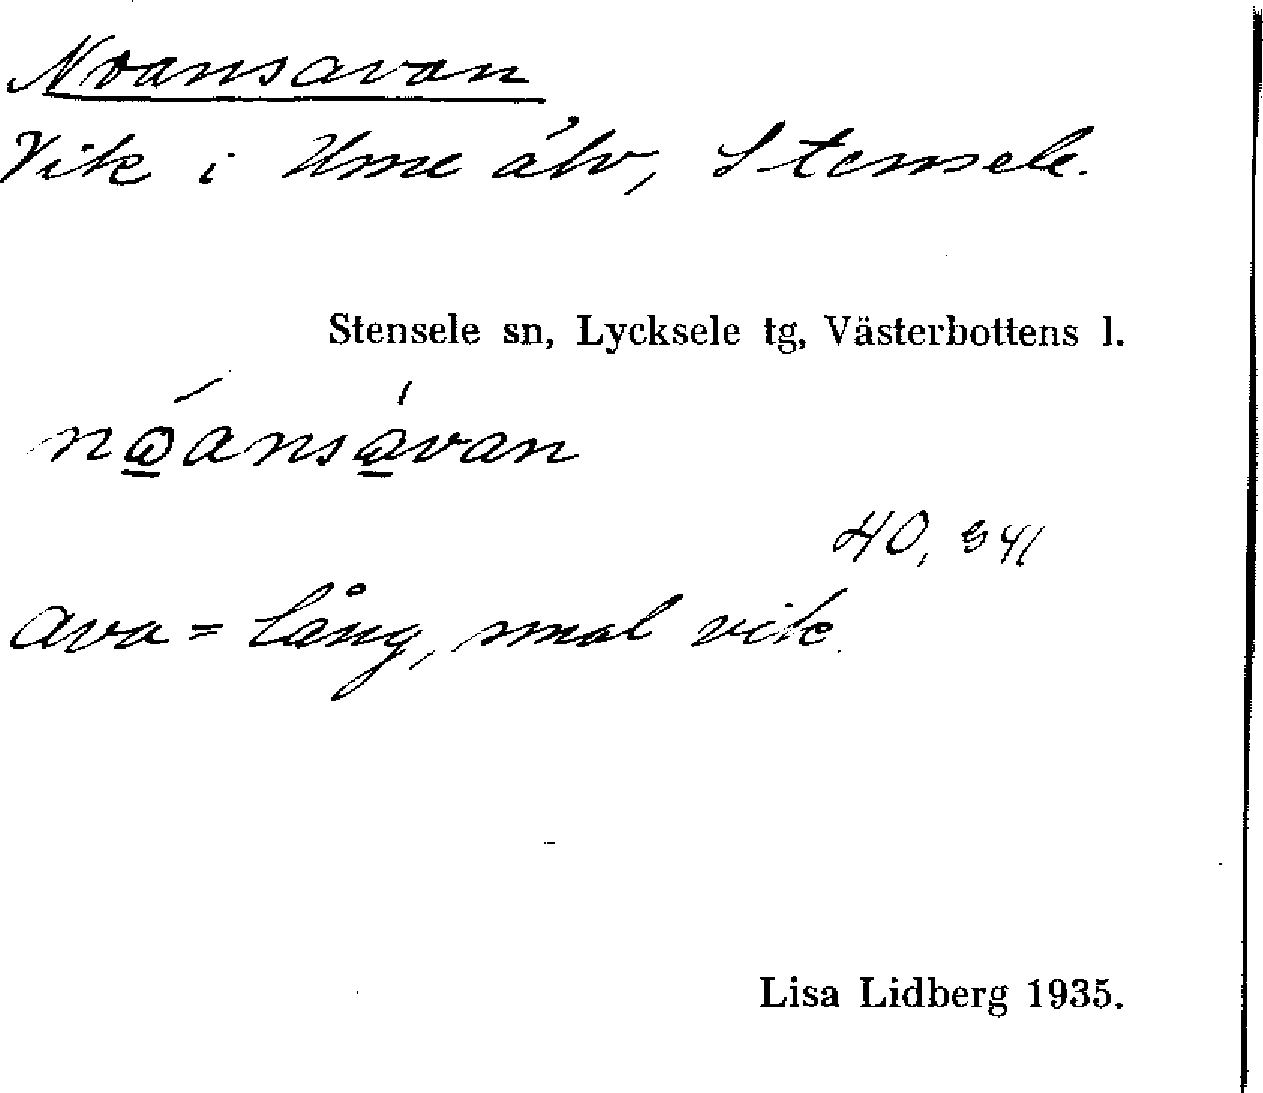 Noansavan
Vik i Ume älv, Stensele.
Stensele sn, Lycksele tg, Västerbottens l.
40, 341
ava = lång, smal vik.
Lisa Lidberg 1935.